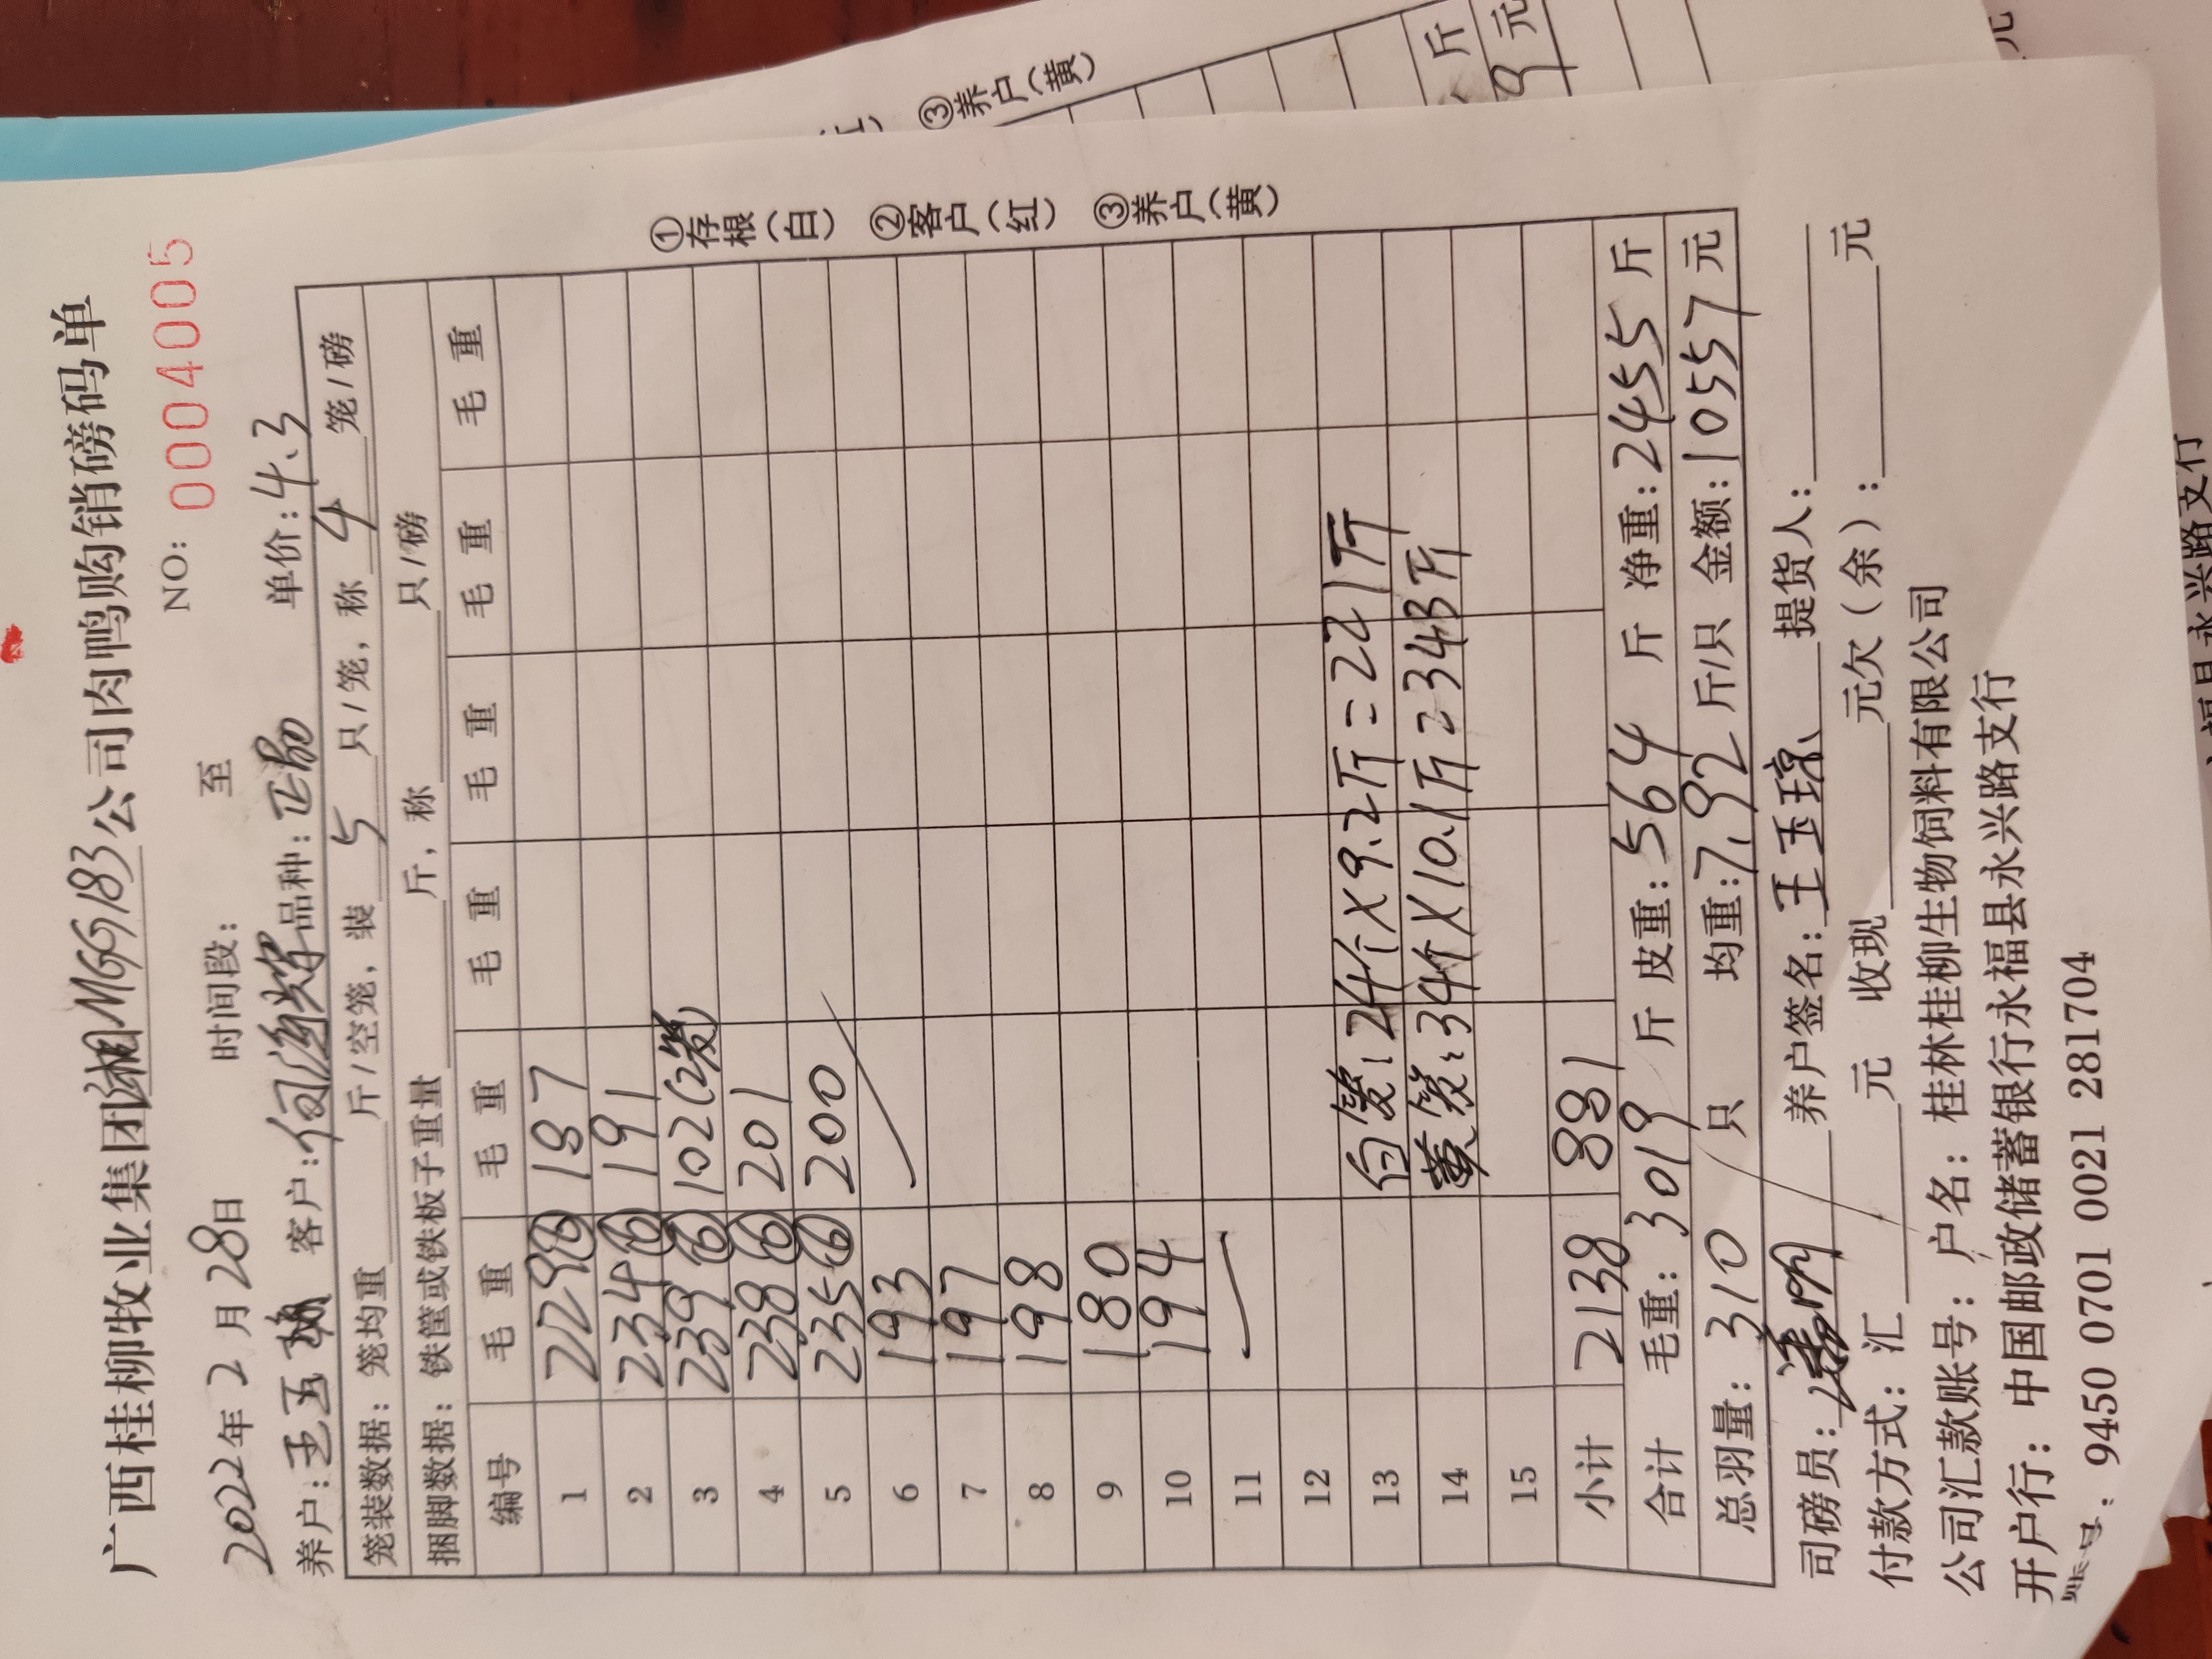 广西桂柳牧业集团湘MGG183公司肉鸭购销磅码单
NO: 0004005
2022年2月28日 时间段: 至
养户:王玉 客户:何海辉 品种: 单价:4.3
笼装数据: 笼均重 斤/空笼,装 5 只/笼,称 4 笼/磅
捆脚数据: 铁筐或铁板子重量 斤,称 只/磅
编号 毛重 毛重 毛重 毛重 毛重 毛重
1 229⑥ 187
2 234⑥ 191
3 239⑥ 102(2笼)
4 238⑥ 201
5 235⑥ 200
6 193
7 197
8 198
9 180
10 194
11
12
13 白笼:24个×9.2斤=221斤
14 黄笼:34个×10.1斤=343斤
15
小计 2138 881
合计 毛重: 3019 斤 皮重: 564 斤 净重: 2455 斤
总羽量: 310 只 均重: 7.92 斤/只 金额: 10557 元
司磅员: 养户签名: 王玉琼 提货人:
付款方式: 汇 元 收现 元欠(余): 元
公司汇款账号: 户名: 桂林桂柳生物饲料有限公司
开户行: 中国邮政储蓄银行永福县永兴路支行
账号: 9450 0701 0021 281704
①存根(白) ②客户(红) ③养户(黄)
③养户(黄)
斤
元
元
永兴路支行